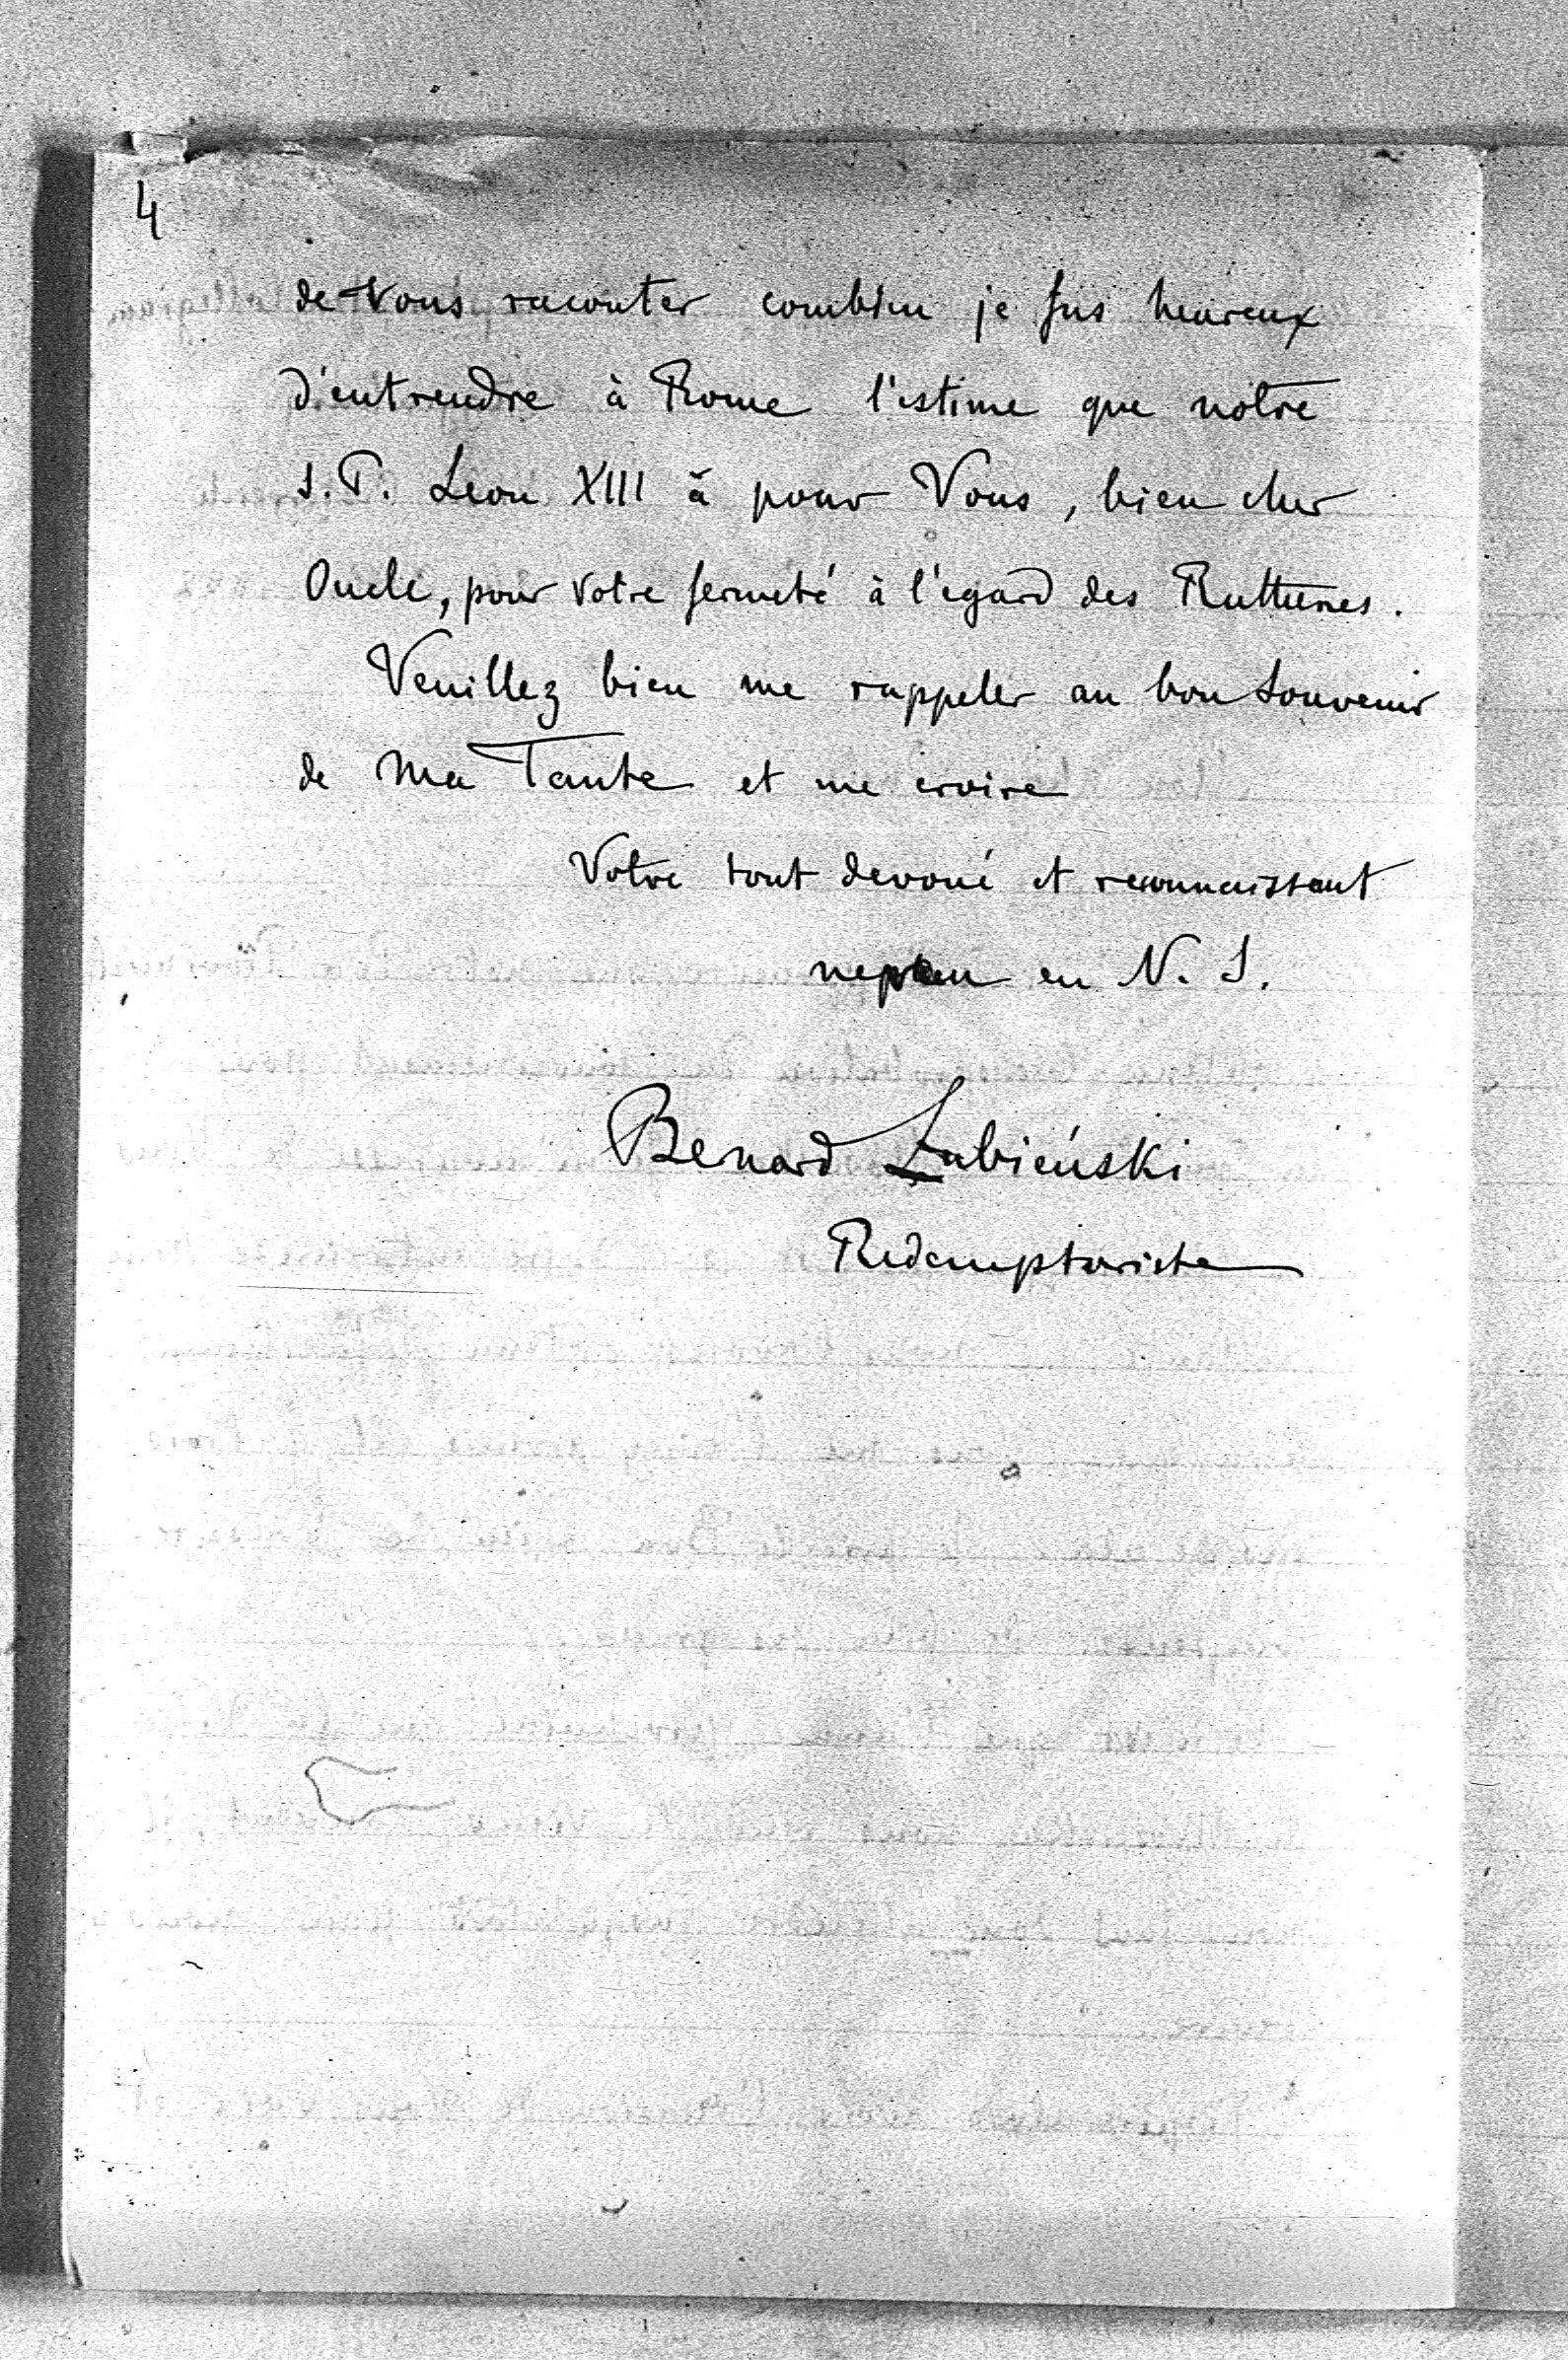 4
de Vous raconter combien je fus heureux
d'entrendre à Rome l'estime que notre
S. P. Leon XIII à pour Vous, bien cher
Oncle, pour Votre fermeté à l'egard des Ruthenes.
Veuillez bien me rappeler au bon souvenir
de Ma Tante et me croire
Votre tout devoué et reconnaissant
neveu en N. S.
Bernard Łubieński
Redemptoriste